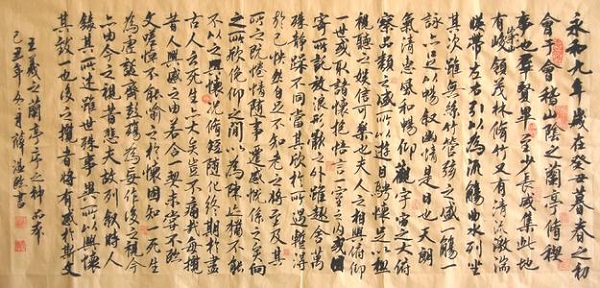 永和九年歲在癸丑暮春之初
會于會稽山陰之蘭亭脩稧
事也群賢畢至少長咸集此地
有崇山峻領茂林脩竹又有清流激湍
暎帶左右引以為流觴曲水列坐
其次雖無絲竹管弦之盛一觴一
詠亦足以暢叙幽情是日也天朗
氣清惠風和暢仰觀宇宙之大俯
察品類之盛所以遊目騁懷足以極
視聽之娛信可樂也夫人之相與俯仰
一世或取諸懷抱悟言一室之內或因
寄所託放浪形骸之外雖趣舍萬
殊靜躁不同當其欣於所遇暫得
於己怏然自足不知老之將至及其
所之既惓情隨事遷感慨係之矣向
之所欣俛仰之間以為陳迹猶不能
不以之興懷況脩短隨化終期於盡
古人云死生亦大矣豈不痛哉每攬
昔人興感之由若合一契未嘗不臨
文嗟悼不能喻之於懷固知一死生
為虛誕齊彭殤為妄作後之視今
亦由今之視昔悲夫故列叙時人
錄其所述雖世殊事異所以興懷
其致一也後之攬者將有感於斯文
王羲之蘭亭序之神品本
己丑年冬月薛書